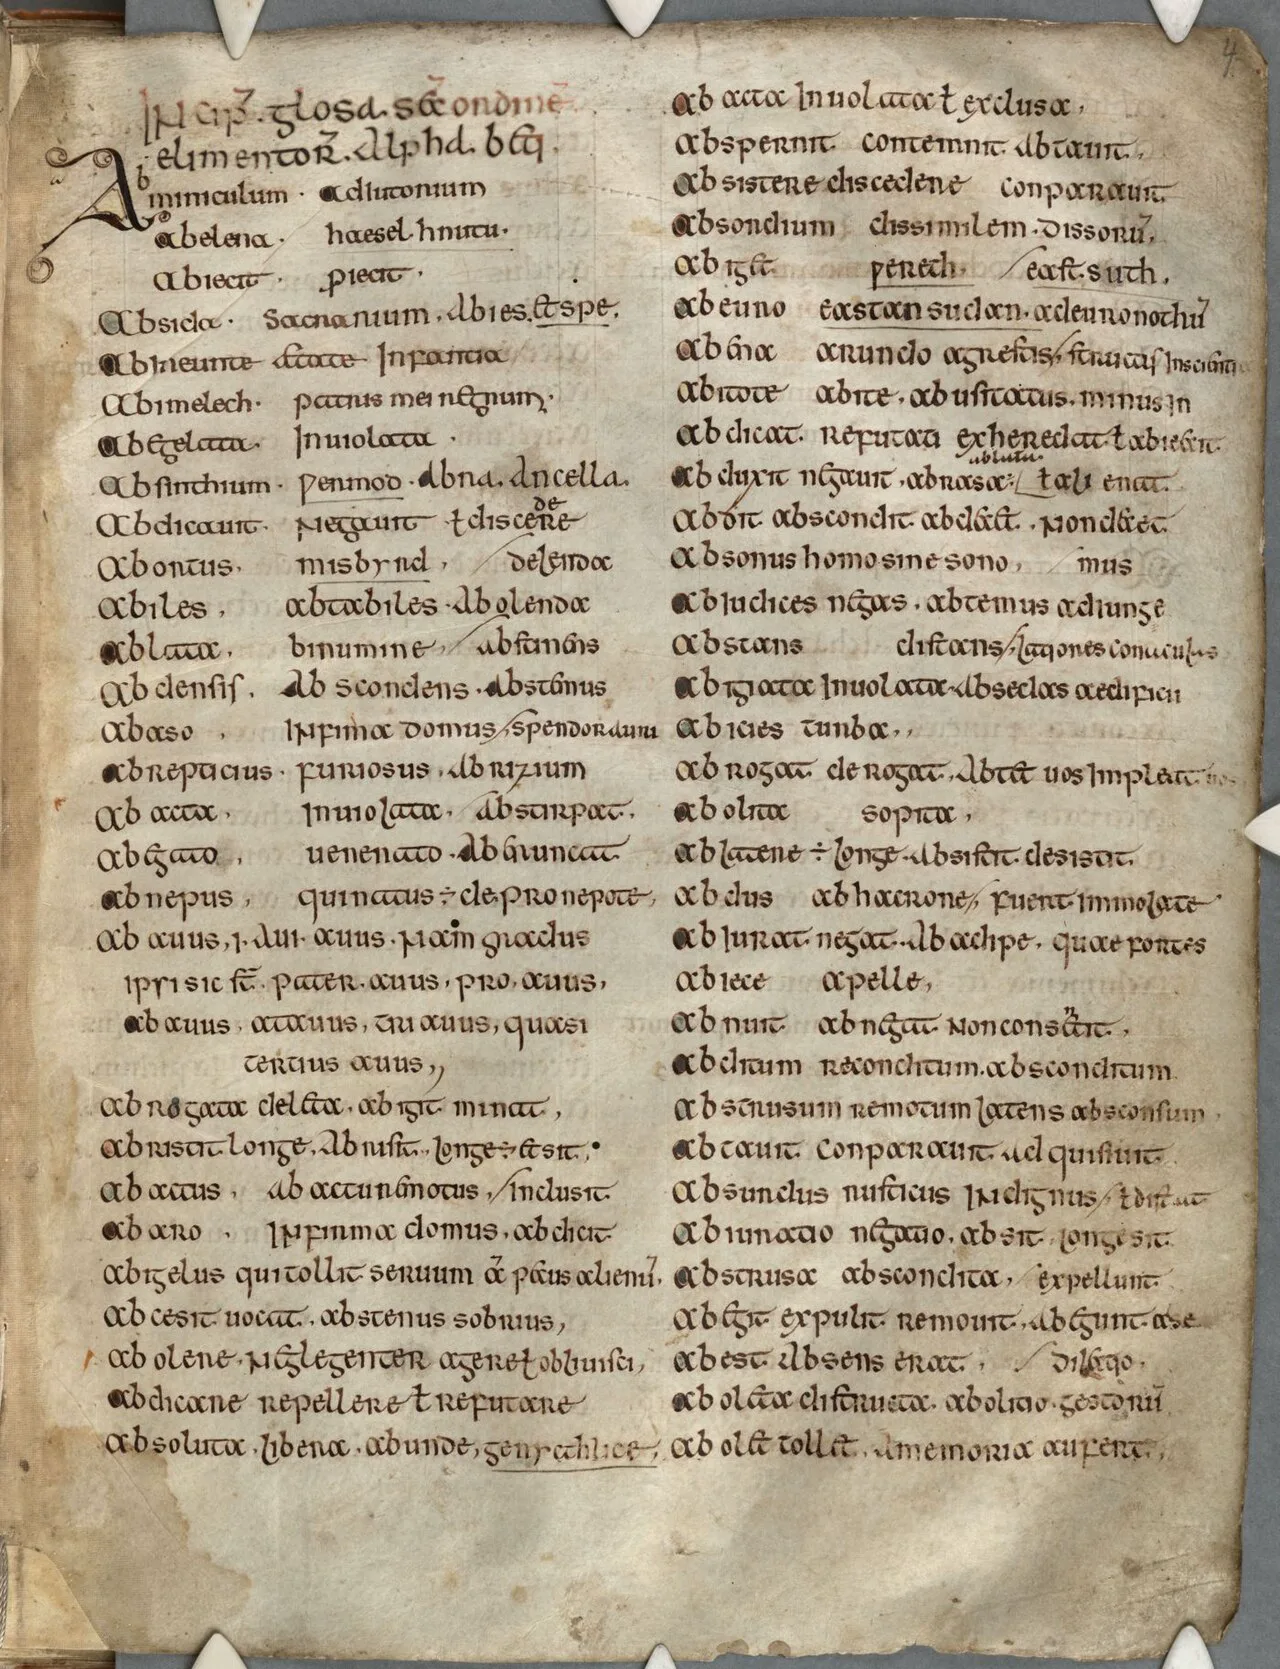 4
Incip̄. glosa. sc̄dm ordinē
elimentoꝝ. Alpha. b&i.
Abminiculum. adiutorium
abelena. haesel. hnutu.
abiecit. piecit.
Absida. sacrarium. Abies. &spe.
abineunte &ate infantia
Abimelech. patrius mei regnum.
abegelata. inuiolata.
Absinthium. permod. Abra. Ancella.
Abdicauit. negauit ł discere
de
Abortus. misbyrd, / delenda
abiles, abtabiles. Abolenda
ablata, binumine, / abstinens
abdensis. Abscondens. Abstenus
abaso, infima domus / spendoraum
abrepticius. furiosus. Abrizium
ab acta, inuiolata. Abstirpat.
abgeto, uenenato. Aberuncat
abnepus, quinatus ÷ de pronepote,
ab auus, .i. aui. auus. nam gradus
ipsi sic s̄t. pater. auus, pro. auus,
abauus, atauus, triauus, quasi
tertius auus,,
abrogata del&a. abigit minat,
abristit longe. Abrist. longe ÷ &sit.
abactus, Ab actu remotus, / inclusit
abaro, infirma domus. abdicit
abigelus qui tollit seruum ā pecus alienū.
abcesit uocat. abstenus sobrius,
abolere. neglegenter agere ł obliuisci,
abdicare repellere ł refutare
absoluta. libera. abunde, genycthlice,
ab acta inuolata ł exclusa,
abspernit contemnit. Abtauit,
absistere discedere conparauit
absordium dissimilem. dissorū.
abig& pereth. / east. suth,
abeuno eastan sudan. adeuronothū
abena arundo agrestis / structis
abitote abite. abusitatus. minus in
abdicat. refutat exheredat ł abiecit
ablata
abduxit negauit. abrasa. ł ali enat.
abdit abscondit. abd&&. non dec&
absonus homo sine sono, / mus
abiudices negas. abtemus adiunge
abstans distans / lationes conuiculas
abigiata inuolata. Absedas aedificii
abicies tumba,,
abrogat derogat. Abt& uos impleat
abolita sopita,
ablatere ÷ longe. Absistit desistit.
abdus ab hac rone, / fuerit immolate
abiurat negat. Ab adipe. quae fortes
abiece apelle,
abnuit abnegat non consentit,
abditum reconditum. absconditum
abstrusum remotum latens absconsum,
abtauit. conparauit. adquisiuit
absurdus rusticus indignus / ł distat
abiuratio negatio. absit longe sit
abstrusa abscondita, / expellunt
abegit expulit remouit. Abegunt ase
abest Absens erat, / dilatio.
abol&a distructa. abolitio. gestorū
abol& toll&. A memoria aufert.